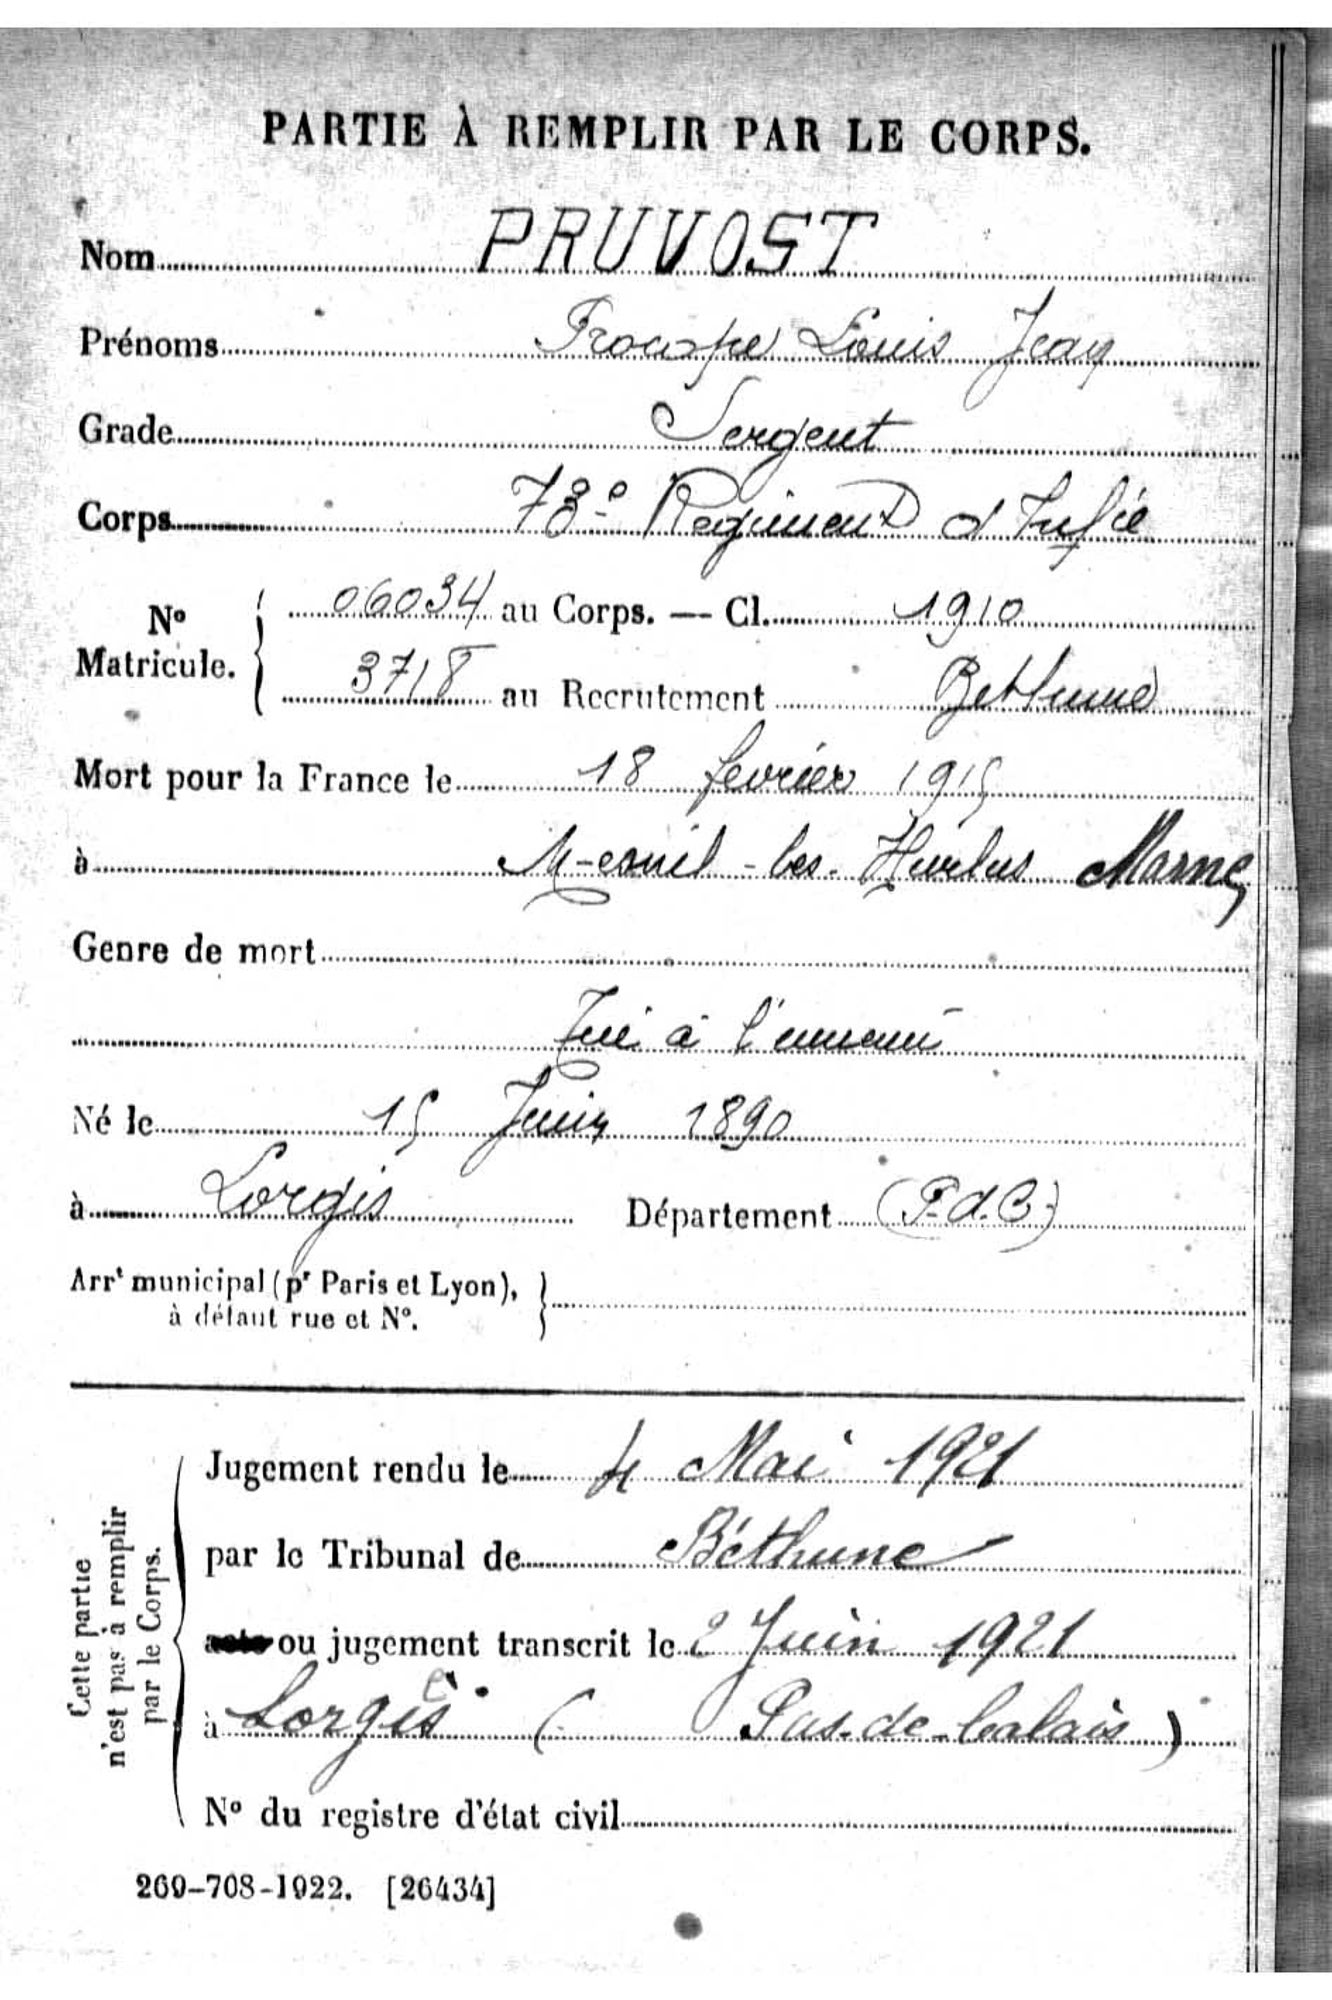 PARTIE À REMPLIR PAR LE CORPS.
Nom PRUVOST
Prénoms Procope Louis Jean
Grade Sergent
Corps 73e Régiment d'Infie
No Matricule. { 06034 au Corps. — Cl. 1910
3718 au Recrutement Bethune
Mort pour la France le 18 fevrier 1915
à Mesnil-les-Hurlus Marne
Genre de mort
Tué à l'ennemi
Né le 15 Juin 1890
à Lorgis Département (P.d.C)
Arrt municipal (pr Paris et Lyon),
à défaut rue et No. }
Cette partie
n'est pas à remplir
par le Corps.
Jugement rendu le 4 Mai 1921
par le Tribunal de Béthune
acte ou jugement transcrit le 2 Juin 1921
à Lorgies (Pas-de-Calais)
No du registre d'état civil
269-708-1922. [26434]